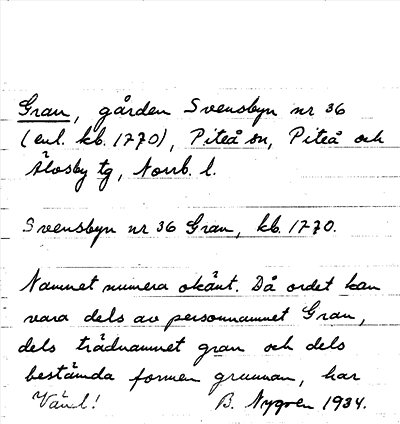 Gran, gården Svensbyn nr 36
(enl. kb. 1770), Piteå sn, Piteå och
Älvsby tg, Norrb. l.
Svensbyn nr 36 Gran, kb. 1770.
Namnet numera okänt. Då ordet kan
vara dels av personnamnet Gran,
dels trädnamnet gran och dels
bestämda formen grannan, har
Vänd! B. Nygren 1934.